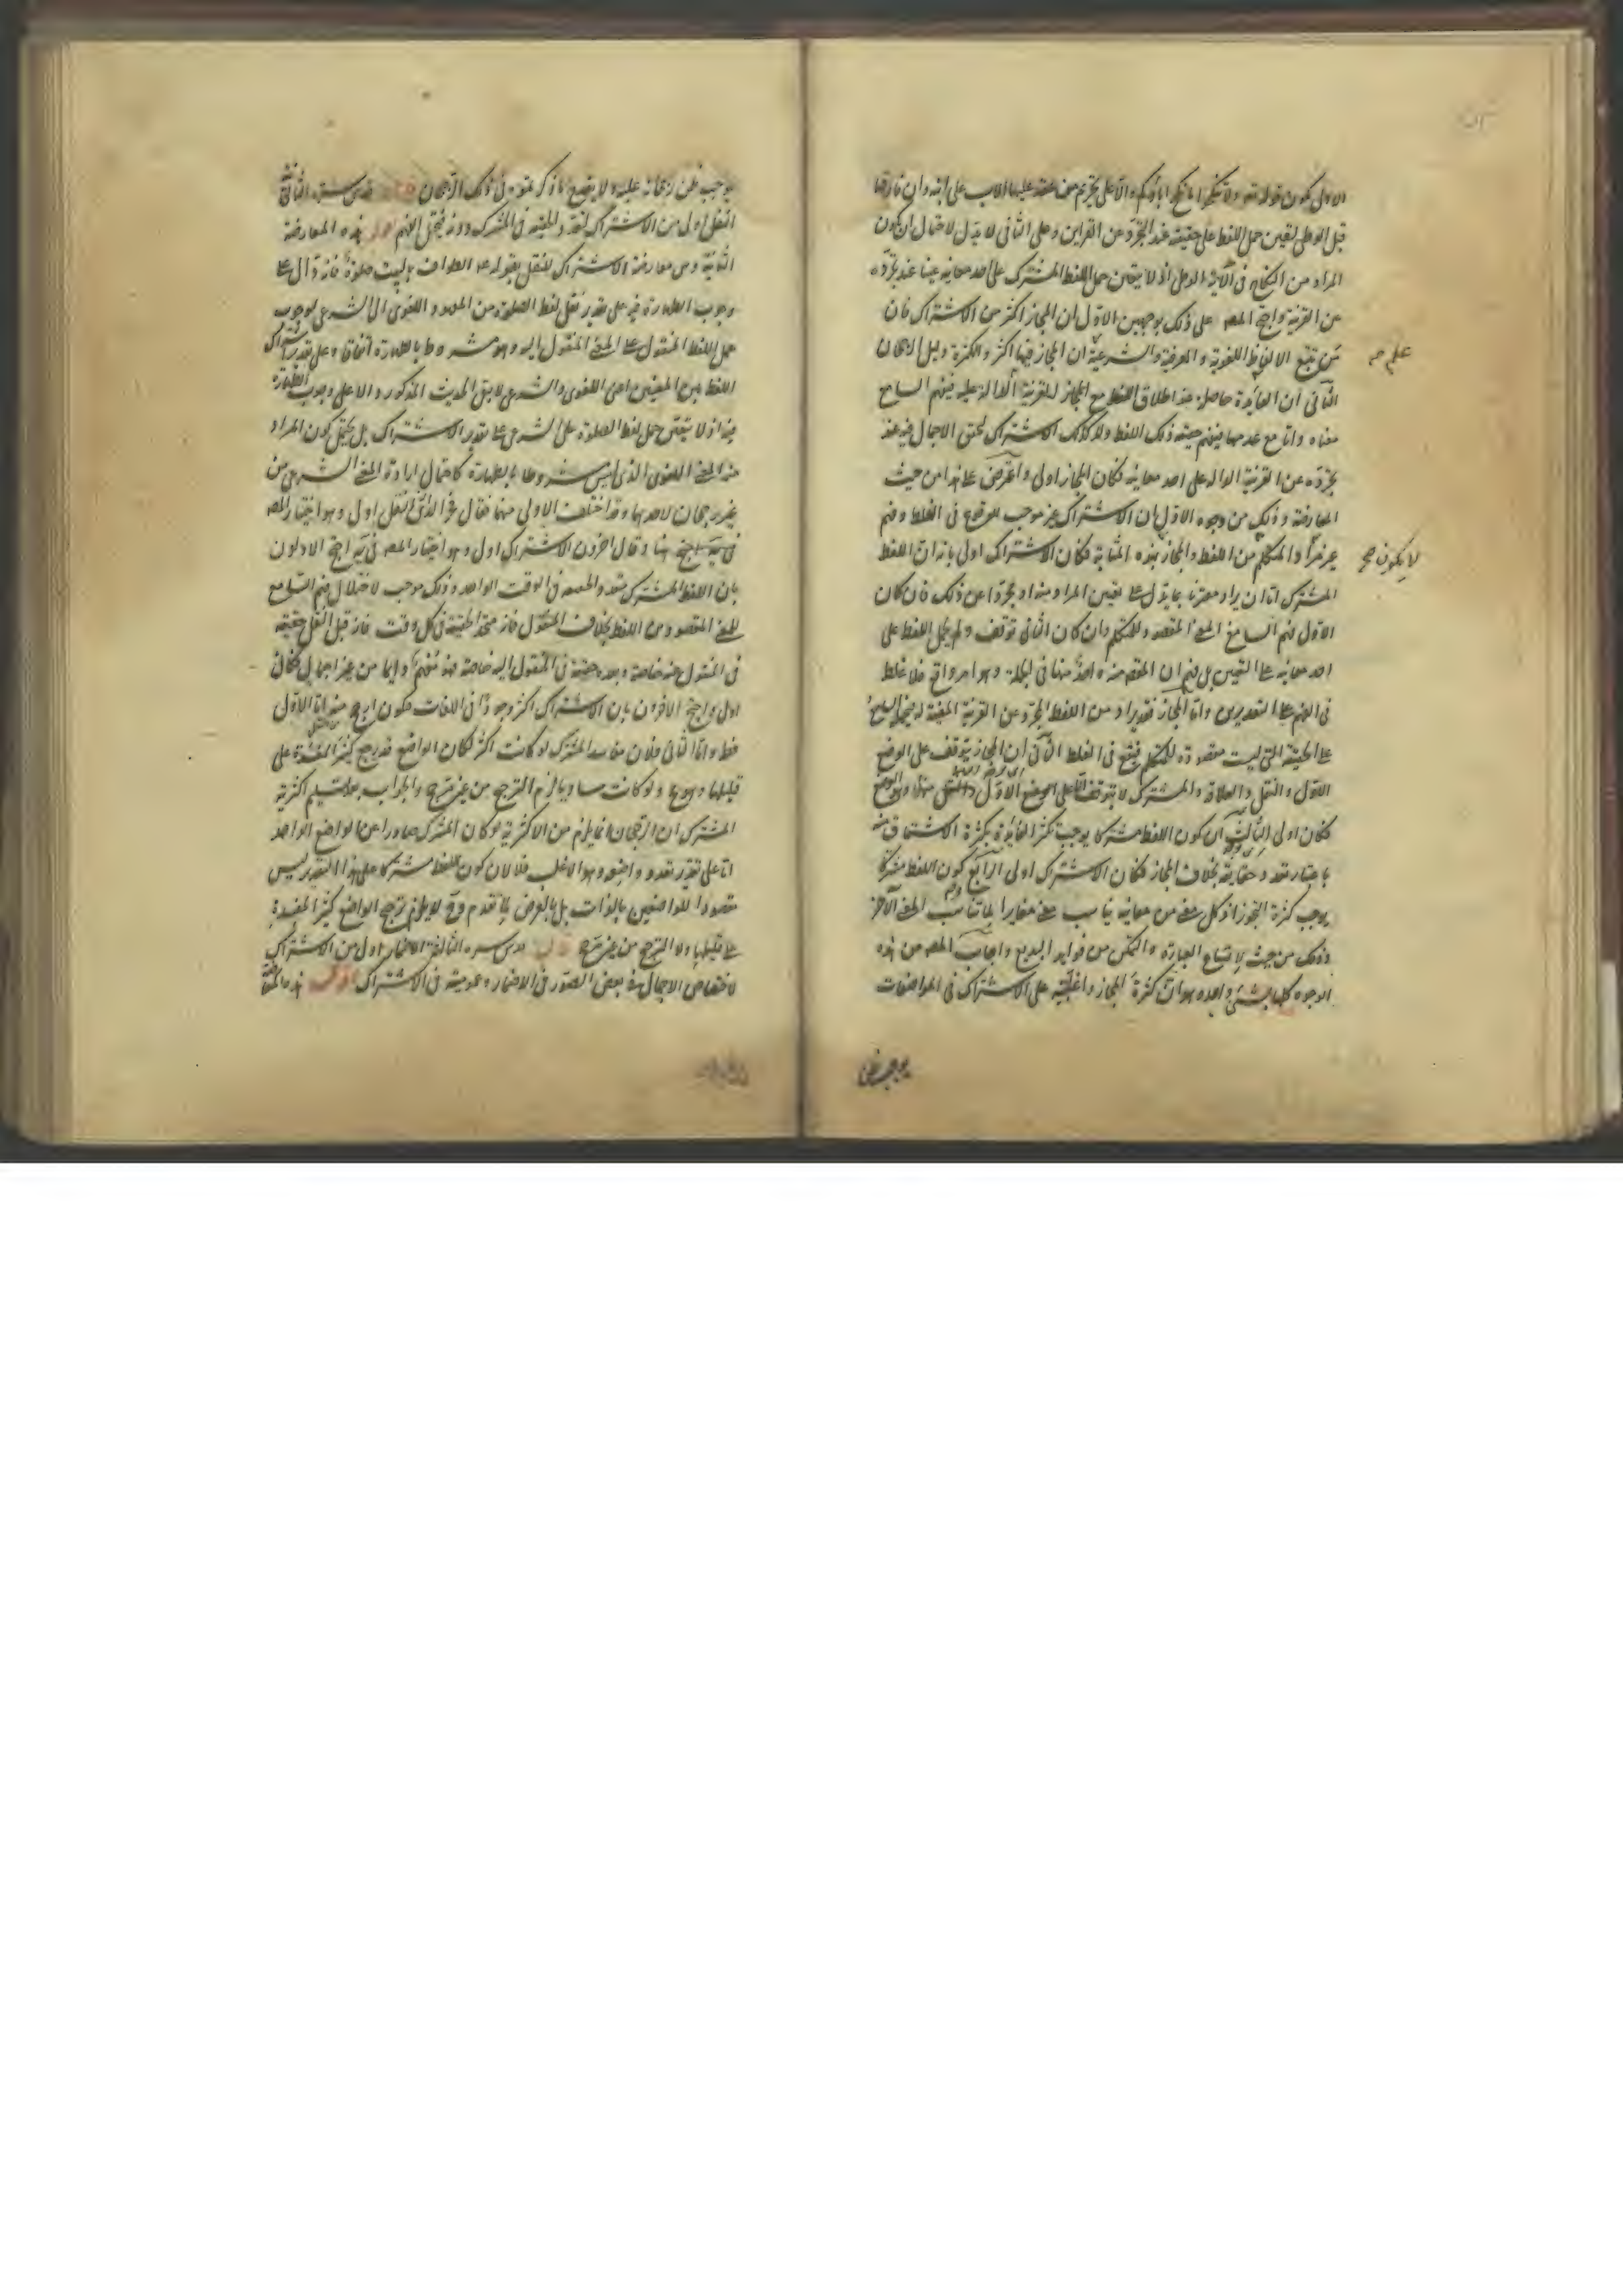 الاول يكون قوله تعه ولا تنكحوا ما نكح اباؤكم دالا على تحريم من عقد عليها الاب على ابنه وان فارقها
قبل الوطى لتعين حمل اللفظ على حقيقته عند التجرد عن القراين وعلى الثانى لا يدل لاحتمال ان يكون
المراد من النكاح فى الآية الوطى اذ لا يتعين حمل اللفظ المشترك على احد معانيه عينا عند تجرده
عن القرينة واحتج المصه على ذلك بوجهين الاول ان المجاز اكثر من الاشتراك فان
من تتبع الالفاظ اللغوية والعرفية والشرعية ان المجاز فيها اكثر والكثرة دليل الرجحان
علم صح
الثانى ان الفايدة حاصلة عند اطلاق اللفظ مع المجاز للقرينة الدالة عليه فيفهم السامع
معناه واما مع عدمها فيفهم حقيقة ذلك اللفظ ولا كذلك الاشتراك لتحقق الاجمال فيه عند
تجرده عن القرينة الدالة على احد معانيه فكان المجاز اولى واعترض على هذا من حيث
المعارضة وذلك من وجوه الاول ان الاشتراك غير موجب للوقوع فى الغلط وفهم
غير مراد المتكلم من اللفظ والمجاز بهذه المثابة فكان الاشتراك اولى بيانه ان اللفظ
لا يكون صح
المشترك اما ان يراد مقترنا بما يدل على تعيين المراد منه او مجردا عن ذلك فان كان
الاول فهم السامع المعنى المقصود للمتكلم وان كان الثانى توقف ولم يحمل اللفظ على
احد معانيه على التعيين بل فهم ان المقصود منه واحد منها فى الجملة وهو امر واقع فلا غلط
فى الفهم على التقديرين واما المجاز فقد يراد من اللفظ المجرد عن القرينة المعينة له فيحمله السامع
على الحقيقة التى ليست مقصودة للمتكلم فيقع فى الغلط الثانى ان المجاز يتوقف على الوضع
الاول والنقل والعلاقة والمشترك لا يتوقف الا على الوضع
فكان اولى الثالث ان كون اللفظ مشتركا يوجب تكثر الفايدة بكثرة الاشتقاق منه
باعتبار تعدد حقايقه بخلاف المجاز فكان الاشتراك اولى الرابع كون اللفظ مشتركا
يوجب كثرة التجوز اذ كل معنى من معانيه يناسب معنى مغايرا لما يناسب المعنى الآخر
وذلك من حيث لاتساع العبارة والتمكن من فوايد البديع واجاب المصه من هذه
الوجوه كلها بشىء واحد وهو ان كثرة المجاز واغلبيته على الاشتراك فى المواضعات
يوجب ظن
يوجب ظن رجحانه عليه ولا يقدح ما ذكرتموه فى ذلك الرجحان قدس سره الثانى
النقل اولى من الاشتراك لتعدد الحقيقة فى المشترك دونه فيختل الفهم اقول هذه المعارضة
الثانية وهى معارضة الاشتراك للنقل بقوله عه الطواف بالبيت صلوة فانه دال على
وجوب الطهارة فيه على تقدير نقل لفظ الصلوة من المعنى اللغوى الى الشرعى لوجوب
حمل اللفظ المنقول على المعنى المنقول اليه وهو مشروط بالطهارة اتفاقا وعلى تقدير اشتراك
اللفظ بين المعنيين اعنى اللغوى والشرعى لا يبقى الحديث المذكور دالا على وجوب الطهارة
فيه اذ لا يتعين حمل لفظ الصلوة على الشرعى على تقدير الاشتراك بل يحتمل كون المراد
منه المعنى اللغوى الذى ليس مشروطا بالطهارة كاحتمال ارادة المعنى الشرعى من
غير رجحان لاحدهما وقد اختلف الاولى منهما فقال فخر الدين النقل اولى وهو اختيار المصه
هنا وقال اخرون الاشتراك اولى وهو اختيار المصه فى يه احتج الاولون
بان اللفظ المشترك متعدد الحقيقة فى الوقت الواحد وذلك موجب لاختلال فهم السامع
للمعنى المقصود من اللفظ بخلاف المنقول فانه متحد الحقيقة فى كل وقت فانه قبل النقل حقيقة
فى المنقول عنه خاصة وبعده حقيقة فى المنقول اليه خاصة فهو مفهم دايما من غير اجمال فكان
اولى واحتج الآخرون بان الاشتراك اكثر وجودا فى اللغات فيكون ارجح اما الاول
فظ واما الثانى فلان مفاسد المشترك لو كانت اكثر لكان الواضع قد رجح كثير المفسدة على
قليلها وهو مح ولو كانت مساوية لزم الترجيح من غير مرجح والجواب بعد تسليم اكثرية
المشترك ان الرجحان انما يلزم من الاكثرية لو كان المشترك صادرا عن الواضع الواحد
اما على تقدير تعدد واضعيه وهو الاغلب فلا لان كون اللفظ مشتركا على هذا التقدير ليس
مقصودا للواضعين بالذات بل بالعرض لما تقدم وح لا يلزم ترجيح الواضع كثير المفسدة
على قليلها ولا الترجيح من غير مرجح قال قدس سره الثالث الاضمار اولى من الاشتراك
لاختصاص الاجمال فى بعض الصور فى الاضمار وعموميته فى الاشتراك اقول هذه